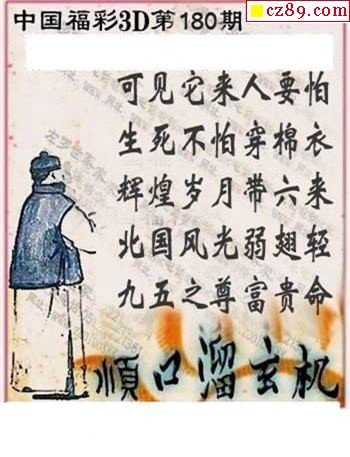 cz89.com
中国福彩3D第180期
可见它来人要怕
生死不怕穿棉衣
辉煌岁月带六来
北国风光弱翅轻
九五之尊富贵命
顺口溜玄机